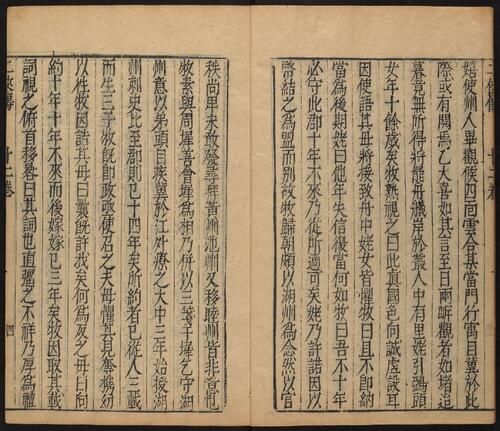 嬉使州人畢觀候四面雲合某當門行寓目冀於此
際或有閱焉乙大喜如其言至日兩岸觀者如堵迨
暮竟無所得將罷舟艤岸於叢人中有里姥引鵶頭
女年十餘歲矣牧熟視之曰此真國色向誠虛設耳
因使語其母將接致舟中姥女皆懼牧曰且不即納
當為後期姥曰他年失信復當何如牧曰吾不十年
必守此郡十年不來乃從所適可矣姥乃許諾因以
幣結之為盟而別故牧歸朝頗以湖州為念然以官
秩尚卑未敢發尋拜黃州池州又移睦州皆非意也
牧素與周墀善會墀為相乃併以三箋干墀乞守湖
州意以弟頭目疾冀於江外療之大中三年始授湖
州刺史比至郡則已十四年矣所約者已從人三載
而生三子牧既即政亟使召之夫母懼其見奪攜幼
以往牧因詰其母曰曩既許我矣何為反之母曰向
約十年十年不來而後嫁嫁已三年矣牧因取其載
詞視之俯首移晷曰其詞也直彊之不祥乃厚為禮
二俠傳 十二卷 四